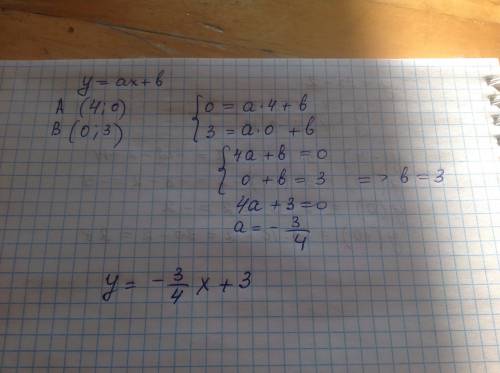 y = ax + b
A (4; 0)
B (0; 3)
{ 0 = a·4 + b
3 = a·0 + b
{ 4a + b = 0
0 + b = 3 => b = 3
4a + 3 = 0
a = - 3/4
y = - 3/4 x + 3